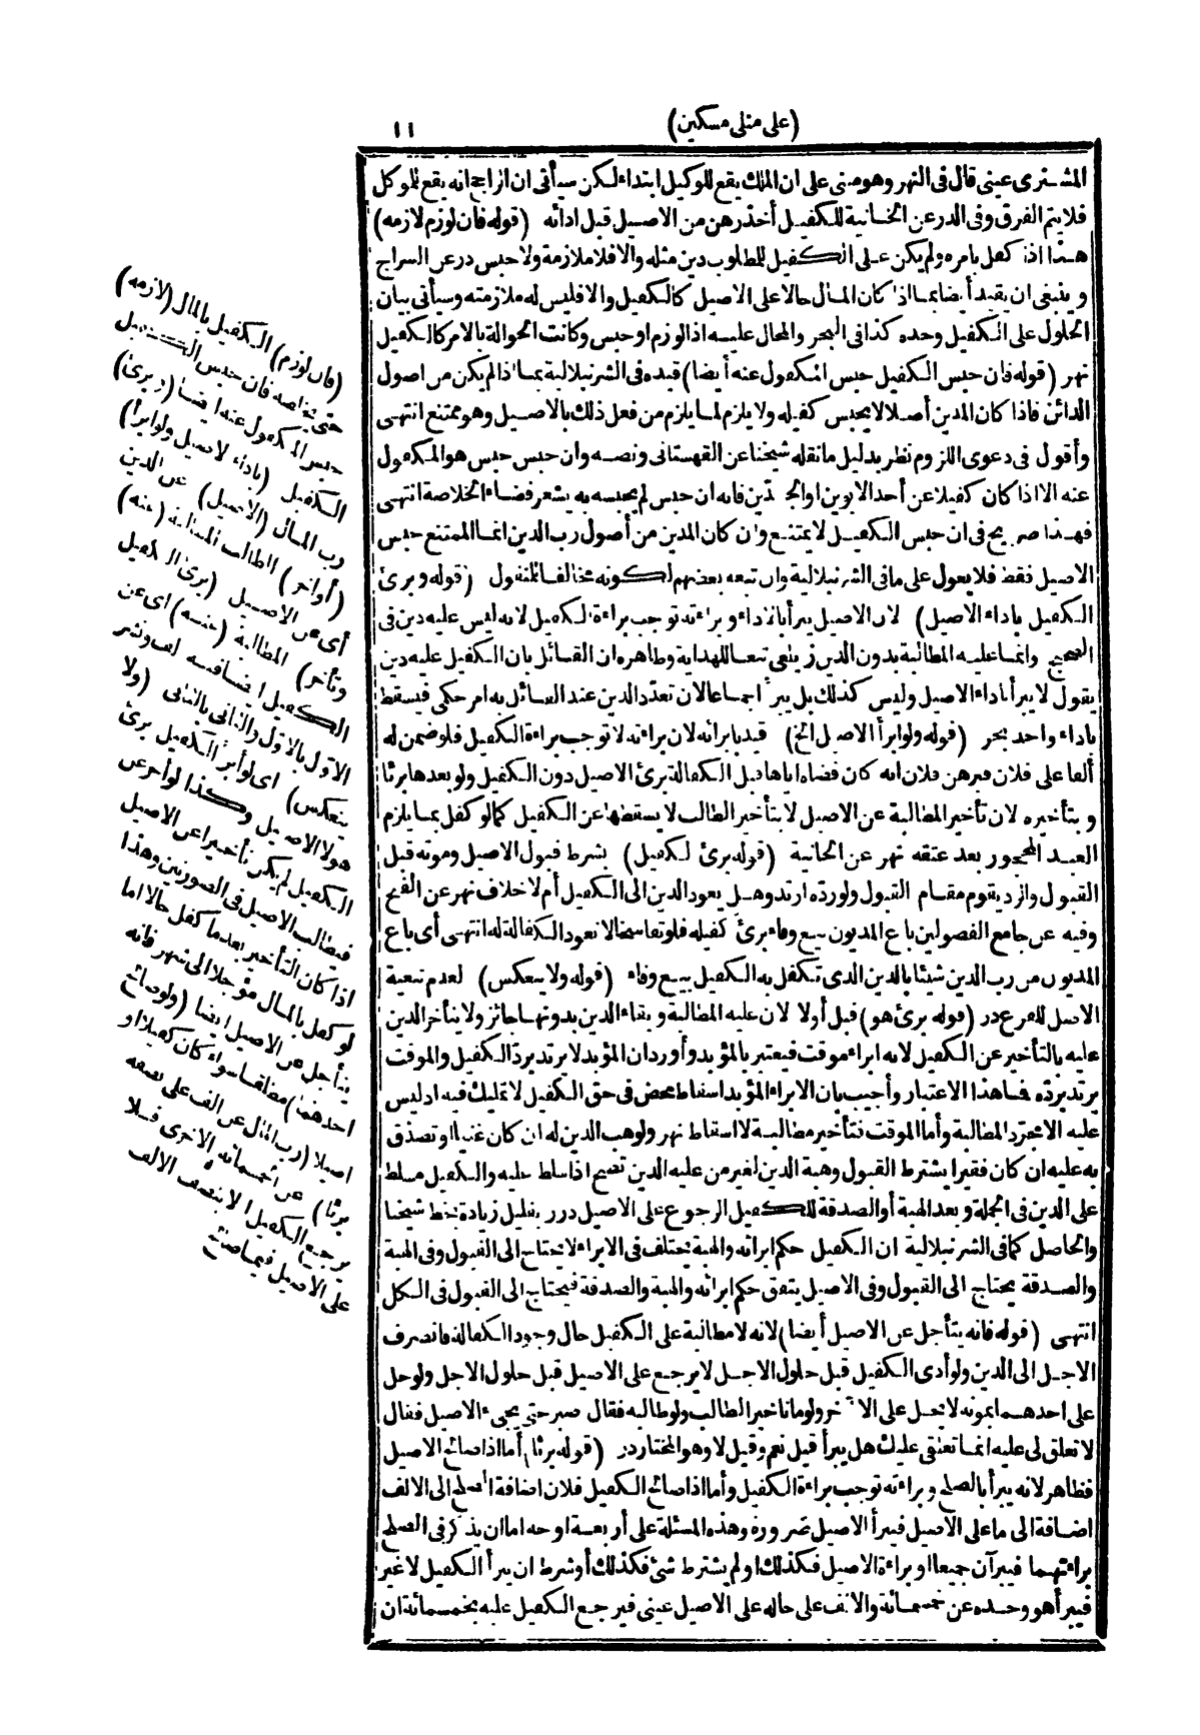 (على منلى مسكين)
١١
المشترى عينى قال فى النهر وهو مبنى على ان الملك يقع للوكيل ابتداء لكن سيأتى ان الراجح انه يقع للموكل
فلا يتم الفرق وفى الدر عن الخانية للكفيل أخذ رهن من الاصيل قبل ادائه (قوله فان لوزم لازمه)
هذا اذا كفل بامره ولم يكن على الكفيل للمطلوب دين مثله والا فلا ملازمة ولا حبس در عن السراج
وينبغى ان يقيد أيضا بما اذا كان المال حالا على الاصيل كالكفيل والا فليس له ملازمته وسيأتى بيان
الحلول على الكفيل وحده كذا فى البحر والمحال عليه اذا لوزم او حبس وكانت الحوالة بالامر كالكفيل
نهر (قوله فان حبس الكفيل حبس المكفول عنه أيضا) قيده فى الشرنبلالية بما اذا لم يكن من اصول
الدائن فاذا كان المدين أصلا لا يحبس كفيله ولا يلزم لما يلزم من فعل ذلك بالاصيل وهو ممتنع انتهى
وأقول فى دعوى اللزوم نظر بدليل ما نقله شيخنا عن القهستانى ونصه وان حبس حبس هو المكفول
عنه الا اذا كان كفيلا عن أحد الابوين او الجدين فانه ان حبس لم يحبسه به يشعر قضاء الخلاصة انتهى
فهذا صريح فى ان حبس الكفيل لا يمتنع وان كان المدين من أصول رب الدين انما الممتنع حبس
الاصيل فقط فلا يعول على ما فى الشرنبلالية وان تبعه بعضهم لكونه مخالفا للمنقول (قوله وبرئ
الكفيل باداء الاصيل) لان الاصيل يبرأ بالاداء وبراءته توجب براءة الكفيل لانه ليس عليه دين فى
الصحيح وانما عليه المطالبة بدون الدين زيلعى تبعا للهداية وظاهره ان القائل بان الكفيل عليه دين
يقول لا يبرأ باداء الاصيل وليس كذلك بل يبرأ اجماعا لان تعدد الدين عند القائل به امر حكمى فيسقط
باداء واحد بحر (قوله ولو ابرأ الاصيل الخ) قيد بابرائه لان براءته لا توجب براءة الكفيل فلو ضمن له
ألفا على فلان فبرهن فلان انه كان قضاه اياها قبل الكفالة برئ الاصيل دون الكفيل ولو بعدها برئا
وبتأخيره لان تأخير المطالبة عن الاصيل لا بتأخير الطالب لا يسقطها عن الكفيل كما لو كفل بما يلزم
العبد المحجور بعد عتقه نهر عن الخانية (قوله برئ الكفيل) بشرط قبول الاصيل وموته قبل
القبول والرد يقوم مقام القبول ولو رده ارتد وهل يعود الدين الى الكفيل أم لا خلاف نهر عن الفتح
وفيه عن جامع الفصولين باع المديون بيع وفاء برئ كفيله فلو تفاسخا لا تعود الكفالة له انتهى أى باع
المديون من رب الدين شيئا بالدين الذى تكفل به الكفيل بيع وفاء (قوله ولا ينعكس) لعدم تبعية
الاصل للفرع در (قوله برئ هو) قبل أولا لان عليه المطالبة وبقاء الدين بدونها جائز ولا يتأخر الدين
عليه بالتأخير عن الكفيل لانه ابراء موقت فيعتبر بالمؤبد وأورد ان المؤبد لا يرتد برد الكفيل والموقت
يرتد برده فما هذا الاعتبار وأجيب بان الابراء المؤبد اسقاط محض فى حق الكفيل لا تمليك فيه اذ ليس
عليه الا مجرد المطالبة وأما الموقت فتأخير مطالبة لا اسقاط نهر ولو وهب الدين له ان كان غنيا او تصدق
به عليه ان كان فقيرا يشترط القبول وهبة الدين لغير من عليه الدين تصح اذا سلط عليه والكفيل مسلط
على الدين فى الجملة وبعد الهبة أو الصدقة للكفيل الرجوع على الاصيل درر بقليل زيادة بخط شيخنا
والحاصل كما فى الشرنبلالية ان الكفيل حكم ابرائه والهبة يختلف فى الابراء لا يحتاج الى القبول وفى الهبة
والصدقة يحتاج الى القبول وفى الاصيل يتفق حكم ابرائه والهبة والصدقة فيحتاج الى القبول فى الكل
انتهى (قوله فانه يتأجل عن الاصيل أيضا) لانه لا مطالبة على الكفيل حال وجود الكفالة فانصرف
الاجل الى الدين ولو أدى الكفيل قبل حلول الاجل لا يرجع على الاصيل قبل حلول الاجل ولو حل
على احدهما بموته لا يحل على الآخر ولو ماتا خير الطالب ولو طالبه فقال صبر حتى يجىء الاصيل فقال
لا تعلق لى عليه انما تعلقى عليك هل يبرأ قيل نعم وقيل لا وهو المختار در (قوله برئا) أما اذا صالح الاصيل
فظاهر لانه يبرأ بالصلح وبراءته توجب براءة الكفيل وأما اذا صالح الكفيل فلان اضافة الصلح الى الالف
اضافة الى ما على الاصيل فيبرأ الاصيل ضرورة وهذه المسئلة على أربعة اوجه اما ان يذكر فى الصلح
براءتهما فيبرآن جميعا او براءة الاصيل فكذلك او لم يشترط شئ فكذلك أو شرط ان يبرأ الكفيل لا غير
فيبرأ هو وحده عن خمسمائة والالف على حاله على الاصيل عينى فيرجع الكفيل عليه بخمسمائة ان
(فان لوزم) الكفيل بالمال (لازمه)
حتى يخلصه فان حبس الكفيل
حبس المكفول عنه ايضا (وبرئ)
الكفيل (باداء الاصيل ولو ابرأ)
رب المال (الاصيل) عن الدين
(أو اخر) الطالب المطالبة (عنه)
أى عن الاصيل (برئ الكفيل
وتأخر) المطالبة (عنه) اى عن
الكفيل ايضا ففيه لف ونشر
الاول بالاول والثانى بالثانى (ولا
ينعكس) اى لو أبرأ الكفيل برئ
هو لا الاصيل وكذا لو أخر عن
الكفيل لم يكن تأخيرا عن الاصيل
فيطالب الاصيل فى الصورتين وهذا
اذا كان التأخير بعد ما كفل حالا اما
لو كفل بالمال مؤجلا الى شهر فانه
يتأجل عن الاصيل ايضا (ولو صالح
احدهما) مطلقا سواء كان كفيلا او
اصيلا (رب المال عن الف على نصفه
برئا) عن خمسمائة الاخرى فلا
يرجع الكفيل الا بنصف الالف
على الاصيل فيما صالح